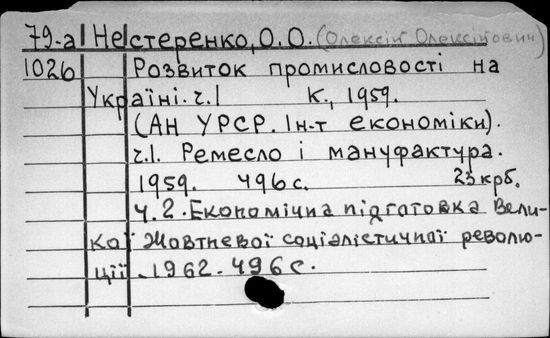 79-а Нестеренко, О.О. (Олексій Олексійович)
1026 Розвиток промисловості на
Україні. ч.1 К., 1959.
(АН УРСР. Ін-т економіки).
ч.1. Ремесло і мануфактура.
1959. 496 с. 23 крб.
ч. 2. Економічна підготовка Вели-
кої Жовтневої соціалістичної револю-
ції. 1962. 496 с.